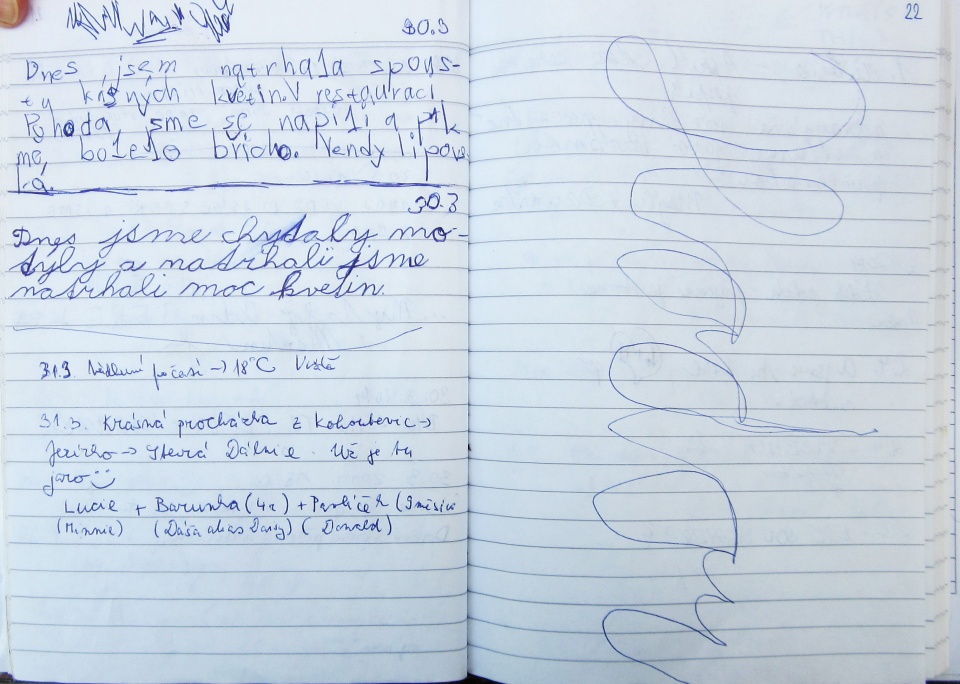 30.3
Dnes jsem natrhala spous-
ty krásných květin. V restauraci
Pohoda, sme se napili a pak
mě, bolelo břicho. Vendy lipovs-
ká.
30.3
Dnes jsme chytaly mo-
týly a natrhali jsme
natrhali moc květin.
31.3. Nádherné počasí → 18°C
31.3. Krásná procházka z Kohoutovic →
Jezírko → Stará Dálnice. Už je tu
jaro
Lucie + Barunka (4r) + Pavlíček (9měsíců
(Minnie) (Dáša alias Daisy) (Donald)
22